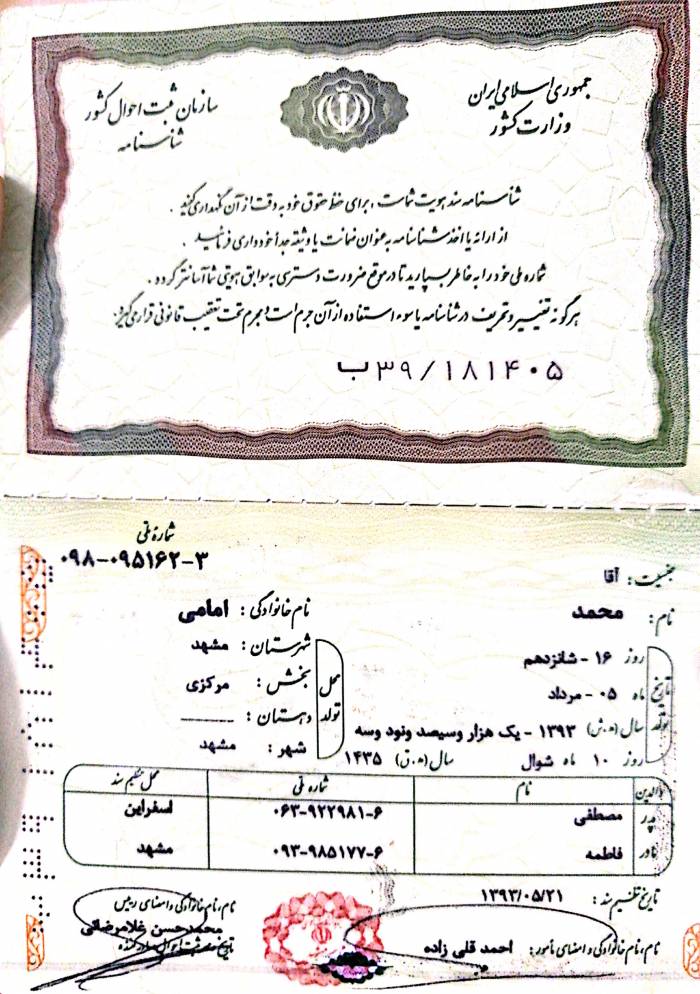 جمهوری اسلامی ایران
وزارت کشور
سازمان ثبت احوال کشور
شناسنامه
شناسنامه سند هویت شماست ، برای حفظ حقوق خود به دقت از آن نگهداری کنید .
از ارائه یا اخذ شناسنامه به عنوان ضمانت یا وثیقه جداً خودداری فرمائید .
شماره ملی خود را به خاطر بسپارید تا در موقع ضرورت دسترسی به سوابق هویتی شما آسانتر گردد .
هرگونه تغییر و تحریف در شناسنامه یا سوء استفاده از آن جرم است و مجرم تحت تعقیب قانونی قرار می‌گیرد.
ب۳۹/۱۸۱۴۰۵
شماره ملی
۰۹۸-۰۹۵۱۶۲-۳
جنسیت : آقا
نام : محمد
نام خانوادگی : امامی
تاریخ تولد
روز ۱۶ - شانزدهم
ماه ۰۵ - مرداد
سال (ه.ش) ۱۳۹۳ - یک هزار وسیصد ونود وسه
روز ۱۰ ماه شوال سال (ه.ق) ۱۴۳۵
محل تولد
شهرستان : مشهد
بخش : مرکزی
دهستان : ـــــــ
شهر : مشهد
والدین نام شماره ملی محل تنظیم سند
پدر مصطفی ۰۶۳-۹۲۲۹۸۱-۶ اسفراین
مادر فاطمه ۰۹۳-۹۸۵۱۷۷-۶ مشهد
تاریخ تنظیم سند : ۱۳۹۳/۰۵/۲۱
نام، نام خانوادگی و امضای مأمور : احمد قلی زاده
نام، نام خانوادگی و امضای رییس
محمدحسن غلامرضائی